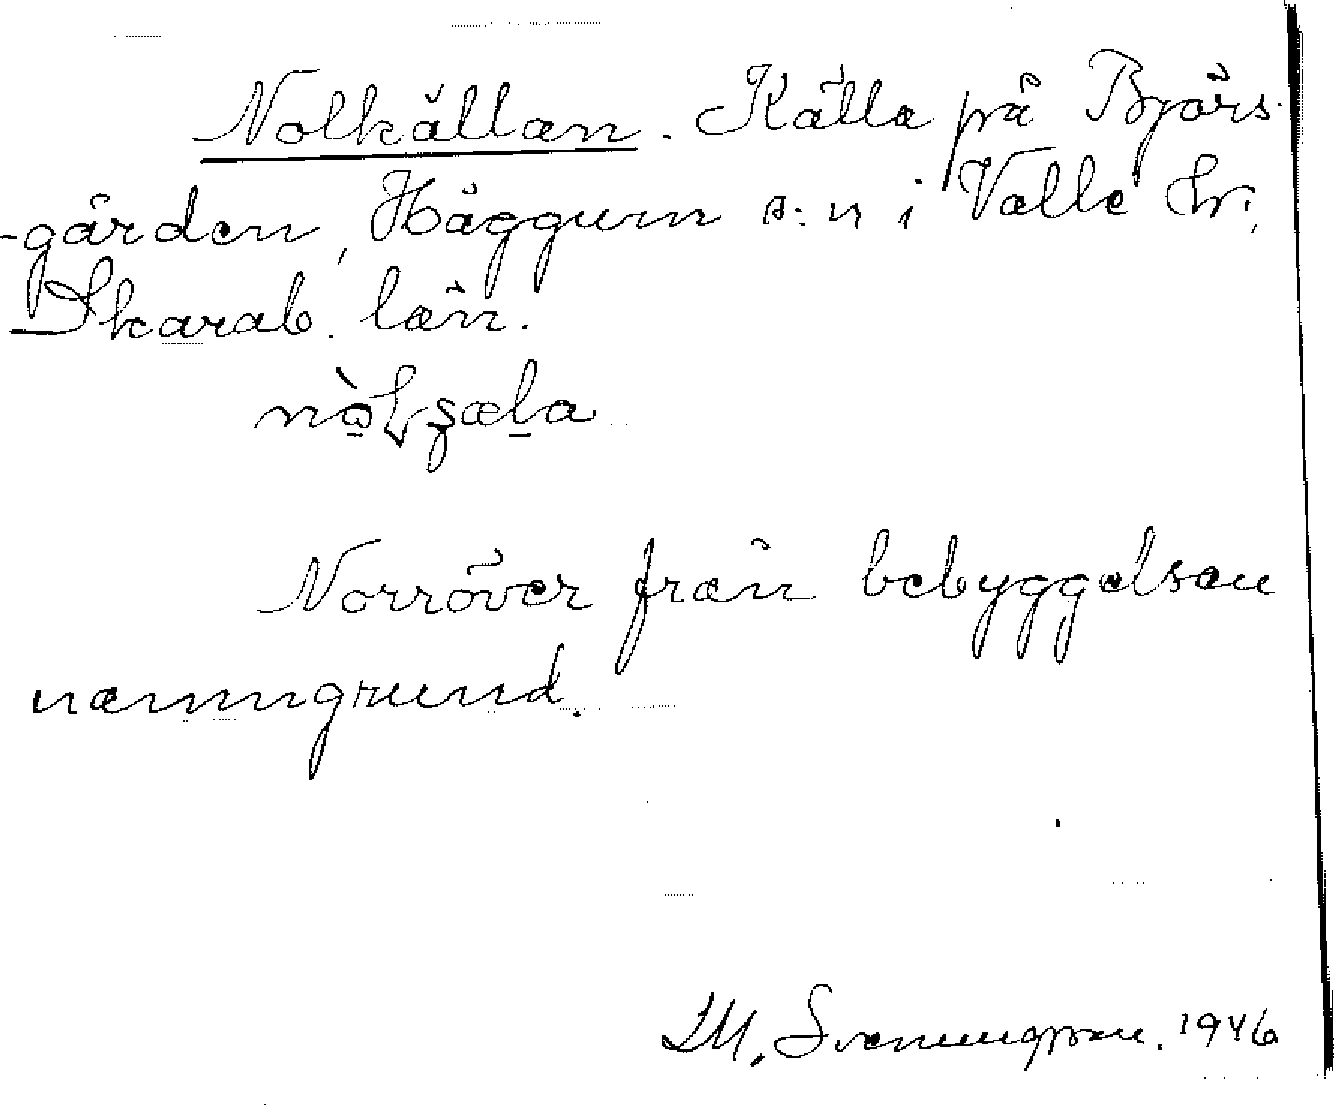 Nolkällan. Källa på Björs-
-gården, Häggum s:n i Valle hr,
Skarab. län.
nò̠Lʂæl̠a
Norröver från bebyggelsen
namngrund.
M. Svenungsson. 1946